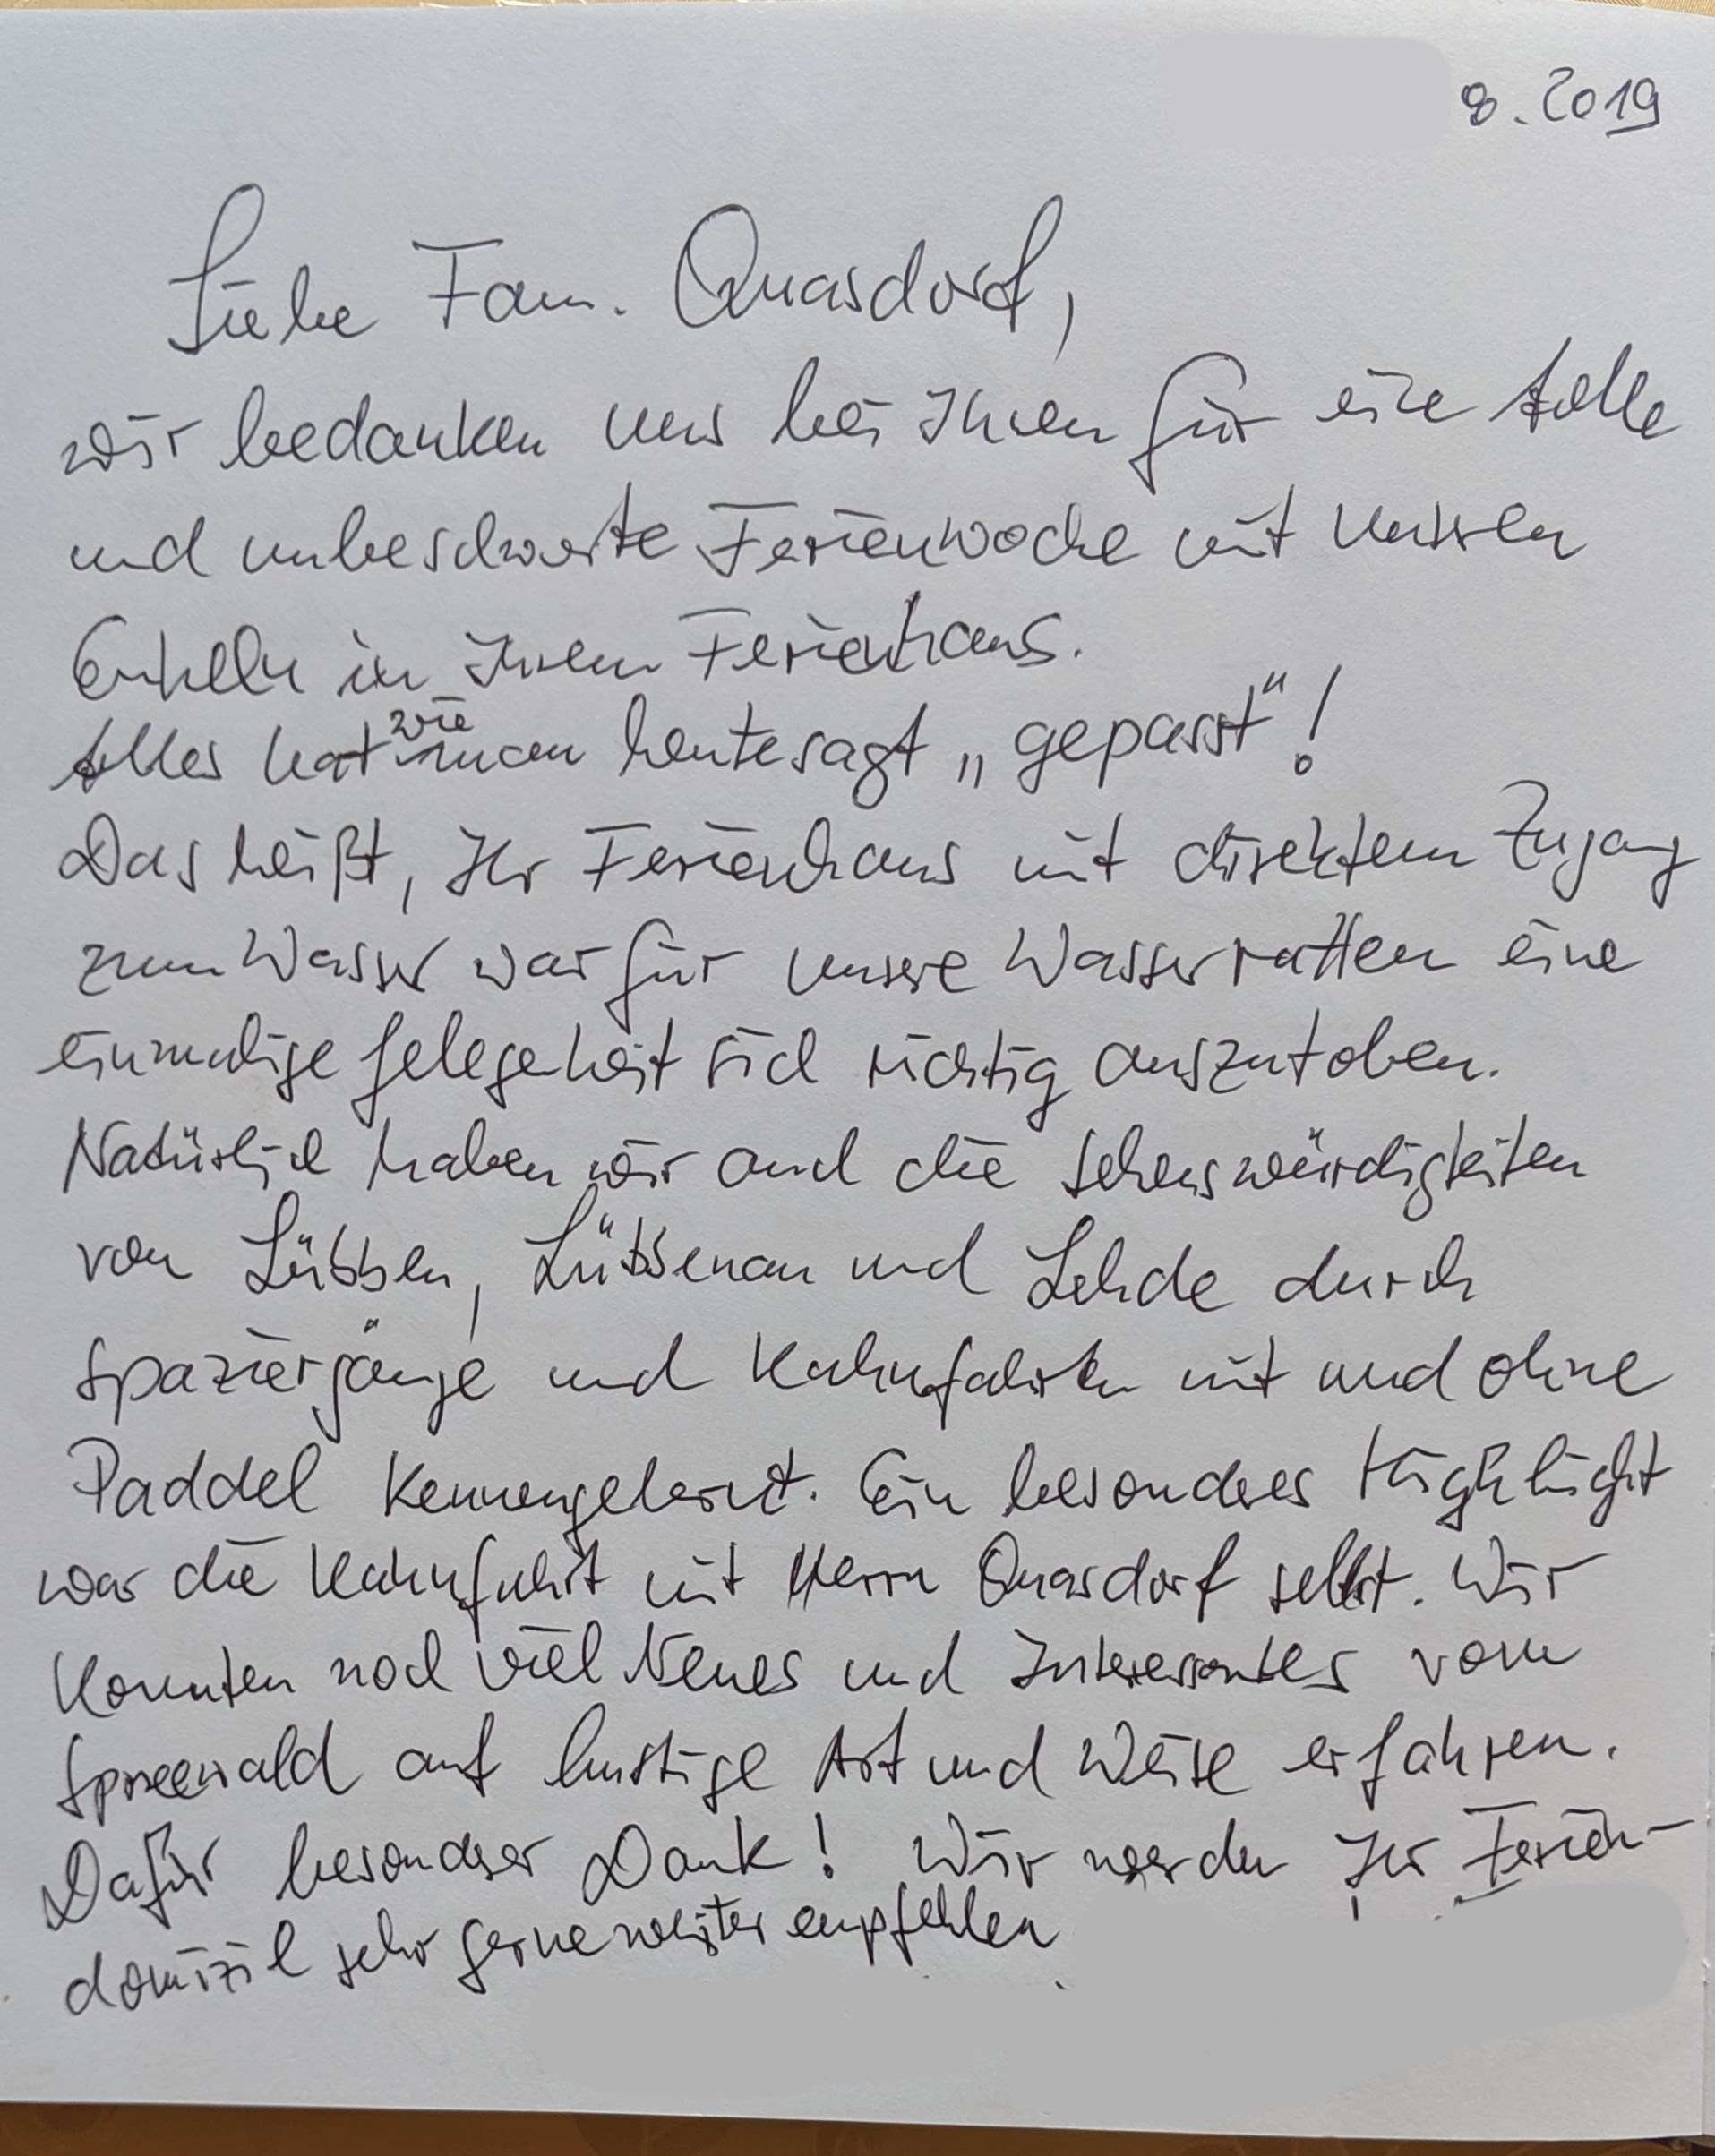 8.2019
Liebe Fam. Quasdorf,
wir bedanken uns bei Ihnen für eine tolle
und unbeschwerte Ferienwoche mit unseren
Enkeln in Ihrem Ferienhaus.
Alles hat wie man heute sagt „gepasst"!
Das heißt, Ihr Ferienhaus mit direktem Zugang
zum Wasser war für unsere Wasserratten eine
einmalige Gelegenheit sich richtig auszutoben.
Natürlich haben wir auch die Sehenswürdigkeiten
von Lübben, Lübbenau und Lehde durch
Spaziergänge und Kahnfahrten mit und ohne
Paddel kennengelernt. Ein besonderes Highlight
war die Kahnfahrt mit Herrn Quasdorf selbst. Wir
konnten noch viel Neues und Interessantes vom
Spreewald auf lustige Art und Weise erfahren.
Dafür besonderer Dank! Wir werden Ihr Ferien-
domizil sehr gerne weiter empfehlen